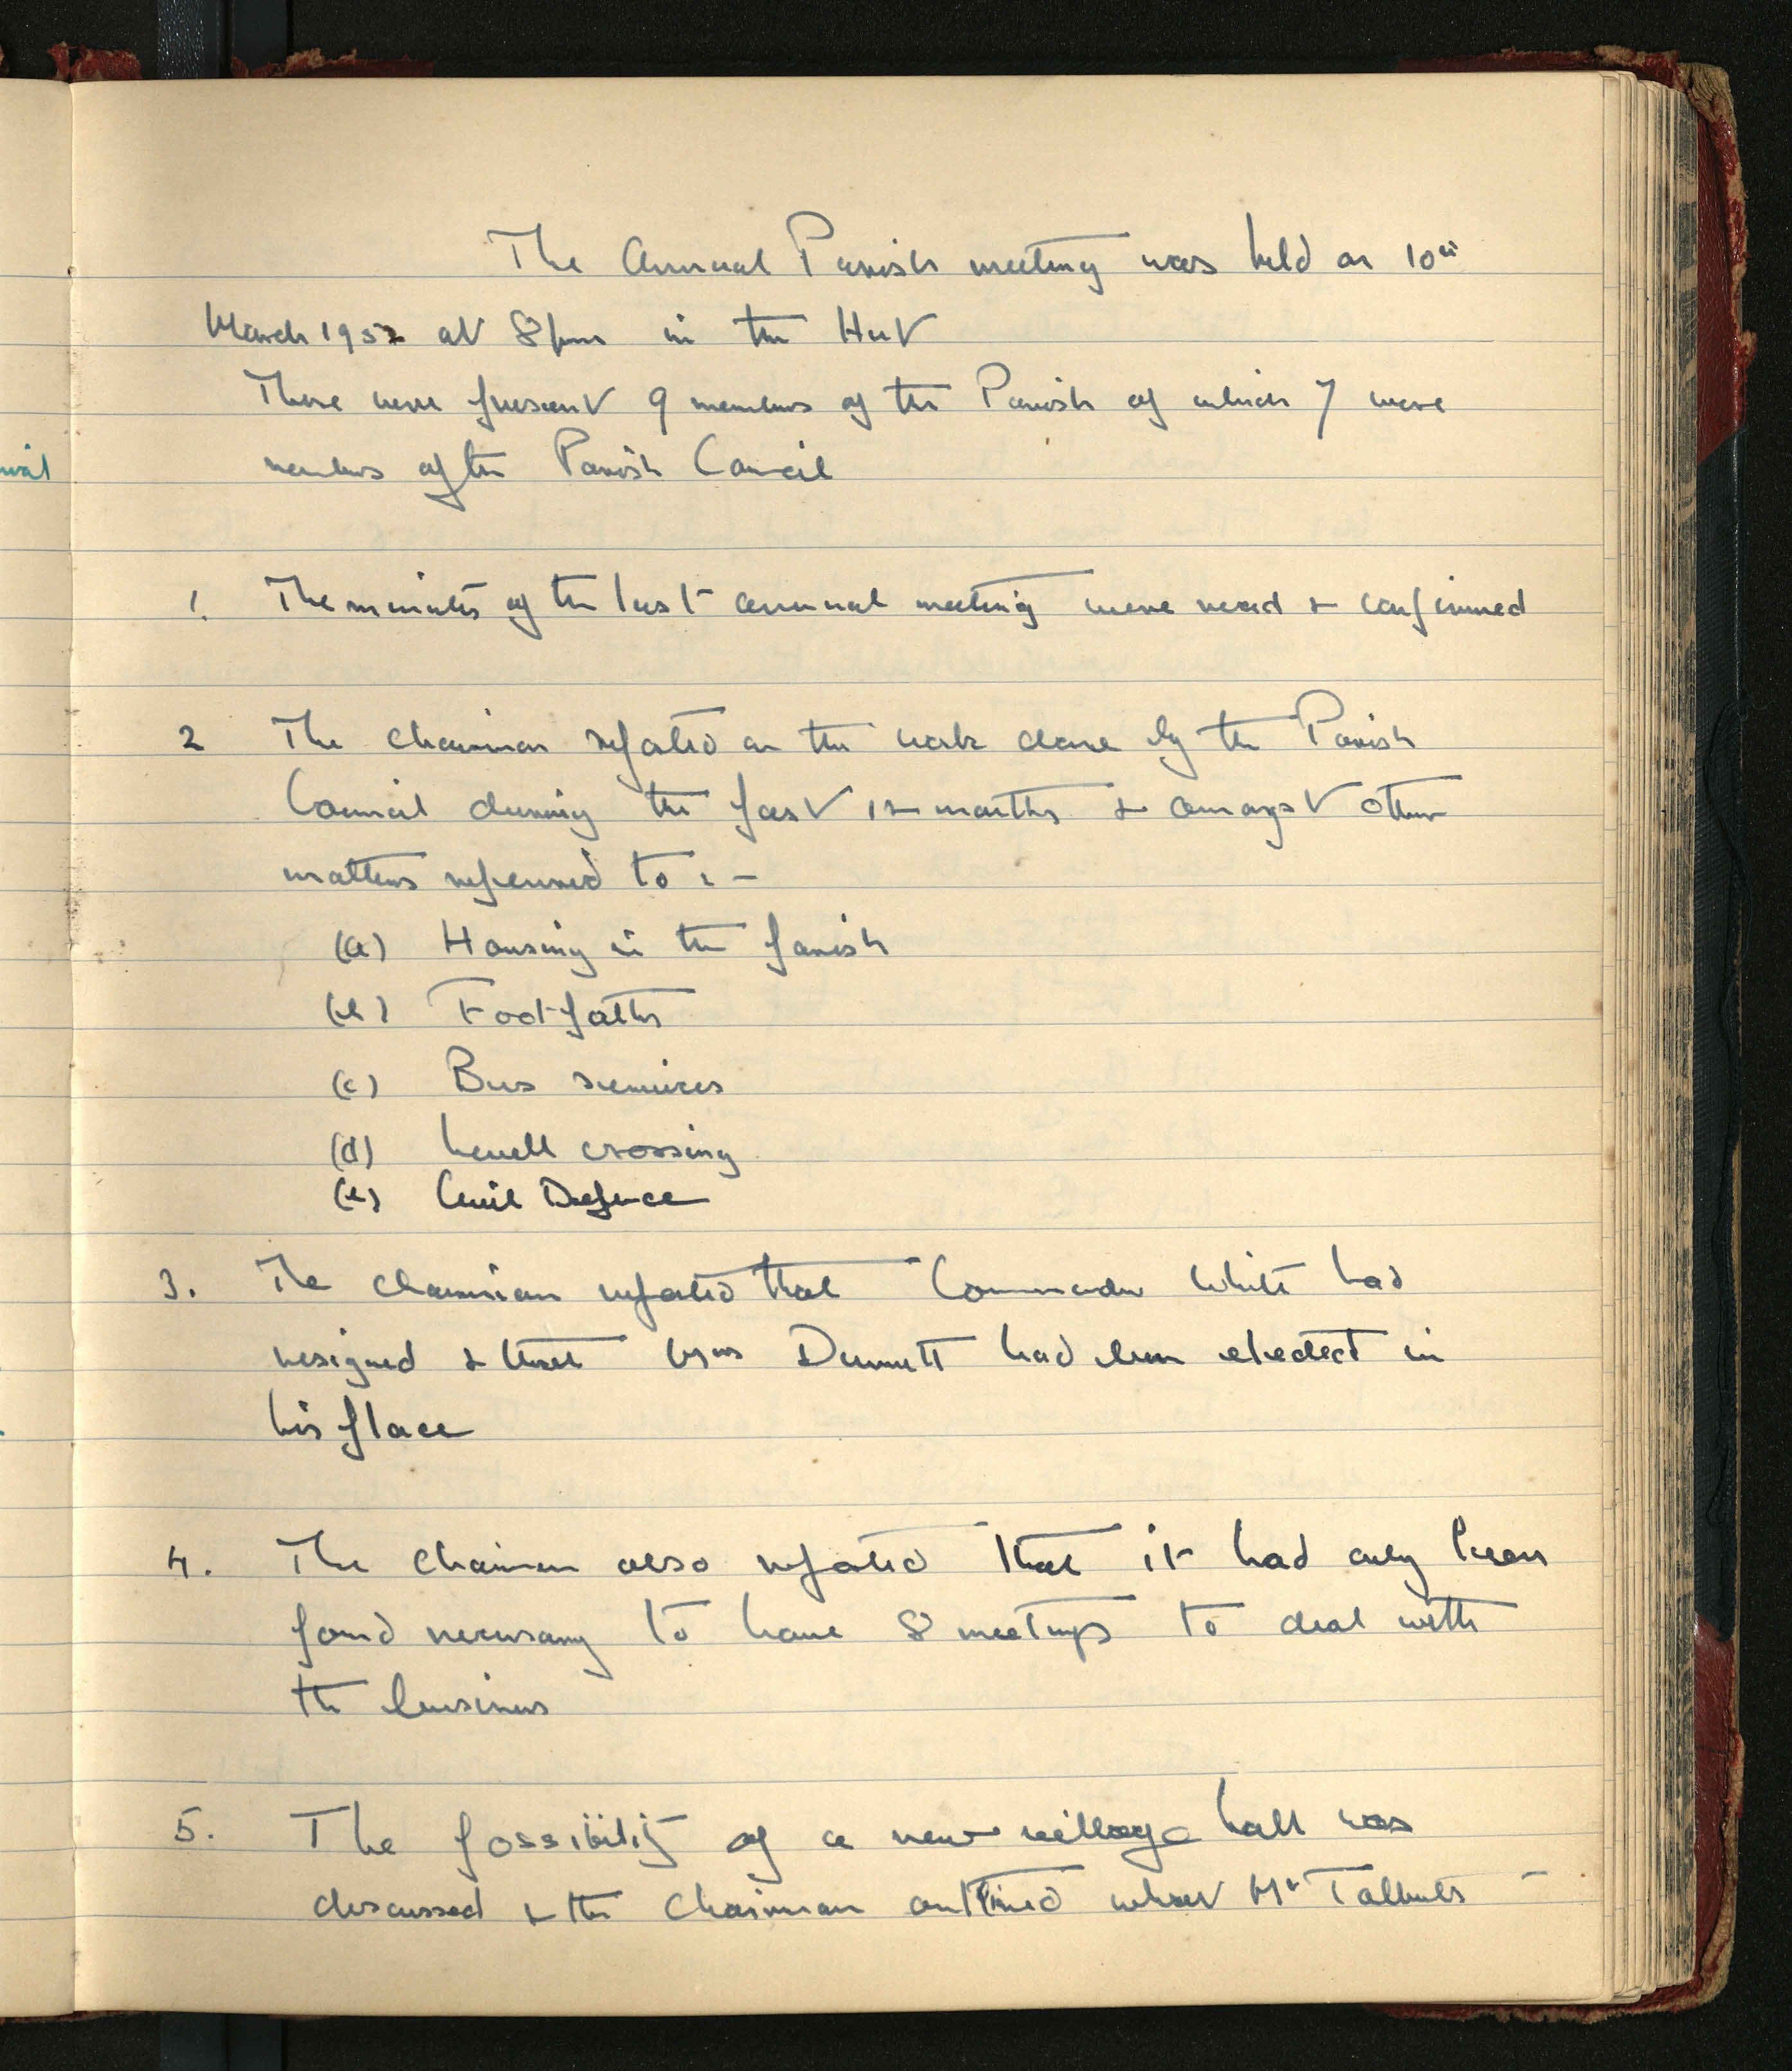 The Annual Parish meeting was held on 10th
March 1952 at 8pm in the Hut
There were present 9 members of the Parish of which 7 were
members of the Parish Council
1. The minutes of the last annual meeting were read & confirmed
2 The chairman reported on the work done by the Parish
Council during the past 12 months & amongst other
matters referred to :-
(a) Housing in the parish
(b) Footpaths
(c) Bus services
(d) Levell crossing
(e) Civil Defence
3. The chairman reported that Commander White had
resigned & that Mrs Dunnett had been elected in
his place
4. The chairman also reported that it had only been
found necessary to have 8 meetings to deal with
the business
5. The possibility of a new village hall was
discussed & the chairman outlined what Mr Talbuts -